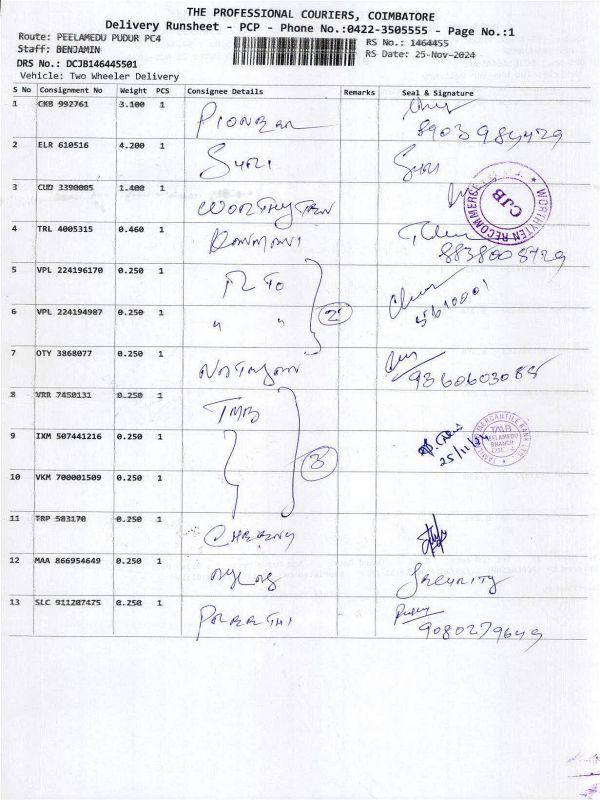 THE PROFESSIONAL COURIERS, COIMBATORE
Delivery Runsheet - PCP - Phone No.:0422-3505555 - Page No.:1
Route: PEELAMEDU PUDUR PC4
RS No.: 1464455
Staff: BENJAMIN
RS Date: 25-Nov-2024
DRS No.: DCJB146445501
Vehicle: Two Wheeler Delivery
S No Consignment No Weight PCS Consignee Details Remarks Seal & Signature
1 CKB 992761 3.100 1 PIONEER
2 ELR 610516 4.200 1 SURI SURI
3 CUD 3390005 1.400 1 WORTHYTEN
WORTHYTEN RECOMMERCE CJB
4 TRL 4005315 0.460 1
5 VPL 224196170 0.250 1
5610001
2
6 VPL 224194987 0.250 1 " "
7 OTY 3868077 0.250 1
8 VRR 7450131 0.250 1 TMB
9 IXM 507441216 0.250 1
25/11/24
TAMILNAD MERCANTILE BANK LTD TMB PEELAMEDU BRANCH
3
10 VKM 700001509 0.250 1
11 TRP 583170 0.250 1
12 MAA 866954649 0.250 1 Security
13 SLC 911207475 0.250 1
9080279649